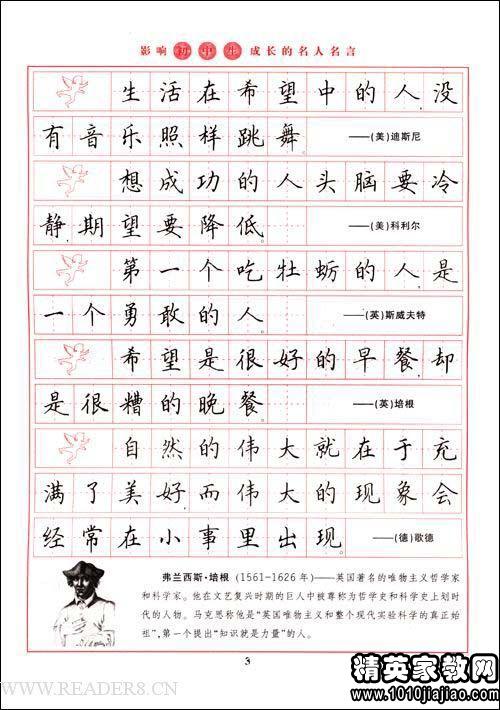 影响初中生成长的名人名言
生活在希望中的人没
有音乐照样跳舞
——(美)迪斯尼
想成功的人头脑要冷
静,期望要降低。
——(美)科利尔
第一个吃牡蛎的人是
一个勇敢的人。
——(英)斯威夫特
希望是很好的早餐,却
是很糟的晚餐。
——(英)培根
自然的伟大就在于充
满了美好而伟大的现象会
经常在小事里出现。
——(德)歌德
弗兰西斯·培根 (1561-1626年)——英国著名的唯物主义哲学家
和科学家。他在文艺复兴时期的巨人中被尊称为哲学史和科学史上划时
代的人物。马克思称他是“英国唯物主义和整个现代实验科学的真正始
祖”,第一个提出“知识就是力量”的人。
3
WWW.READER8.CN
精英家教网
www.1010jiajiao.com